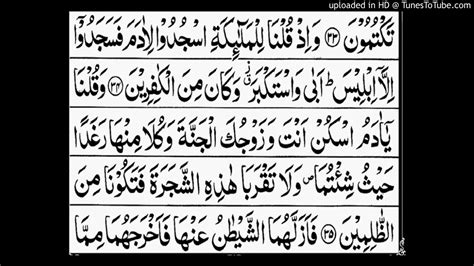 uploaded in HD @ TunesToTube.com
تَكْتُمُوْنَ ﴿۳۳﴾ وَاِذْ قُلْنَا لِلْمَلٰٓئِكَةِ اسْجُدُوْا لِاٰدَمَ فَسَجَدُوْۤا
اِلَّاۤ اِبْلِيْسَ ؕ اَبٰى وَاسْتَكْبَرَ ۗ وَكَانَ مِنَ الْكٰفِرِيْنَ ﴿۳۴﴾ وَقُلْنَا
يٰۤاٰدَمُ اسْكُنْ اَنْتَ وَزَوْجُكَ الْجَنَّةَ وَكُلَا مِنْهَا رَغَدًا
حَيْثُ شِئْتُمَا ۪ وَلَا تَقْرَبَا هٰذِهِ الشَّجَرَةَ فَتَكُوْنَا مِنَ
الظّٰلِمِيْنَ ﴿۳۵﴾ فَاَزَلَّهُمَا الشَّيْطٰنُ عَنْهَا فَاَخْرَجَهُمَا مِمَّا